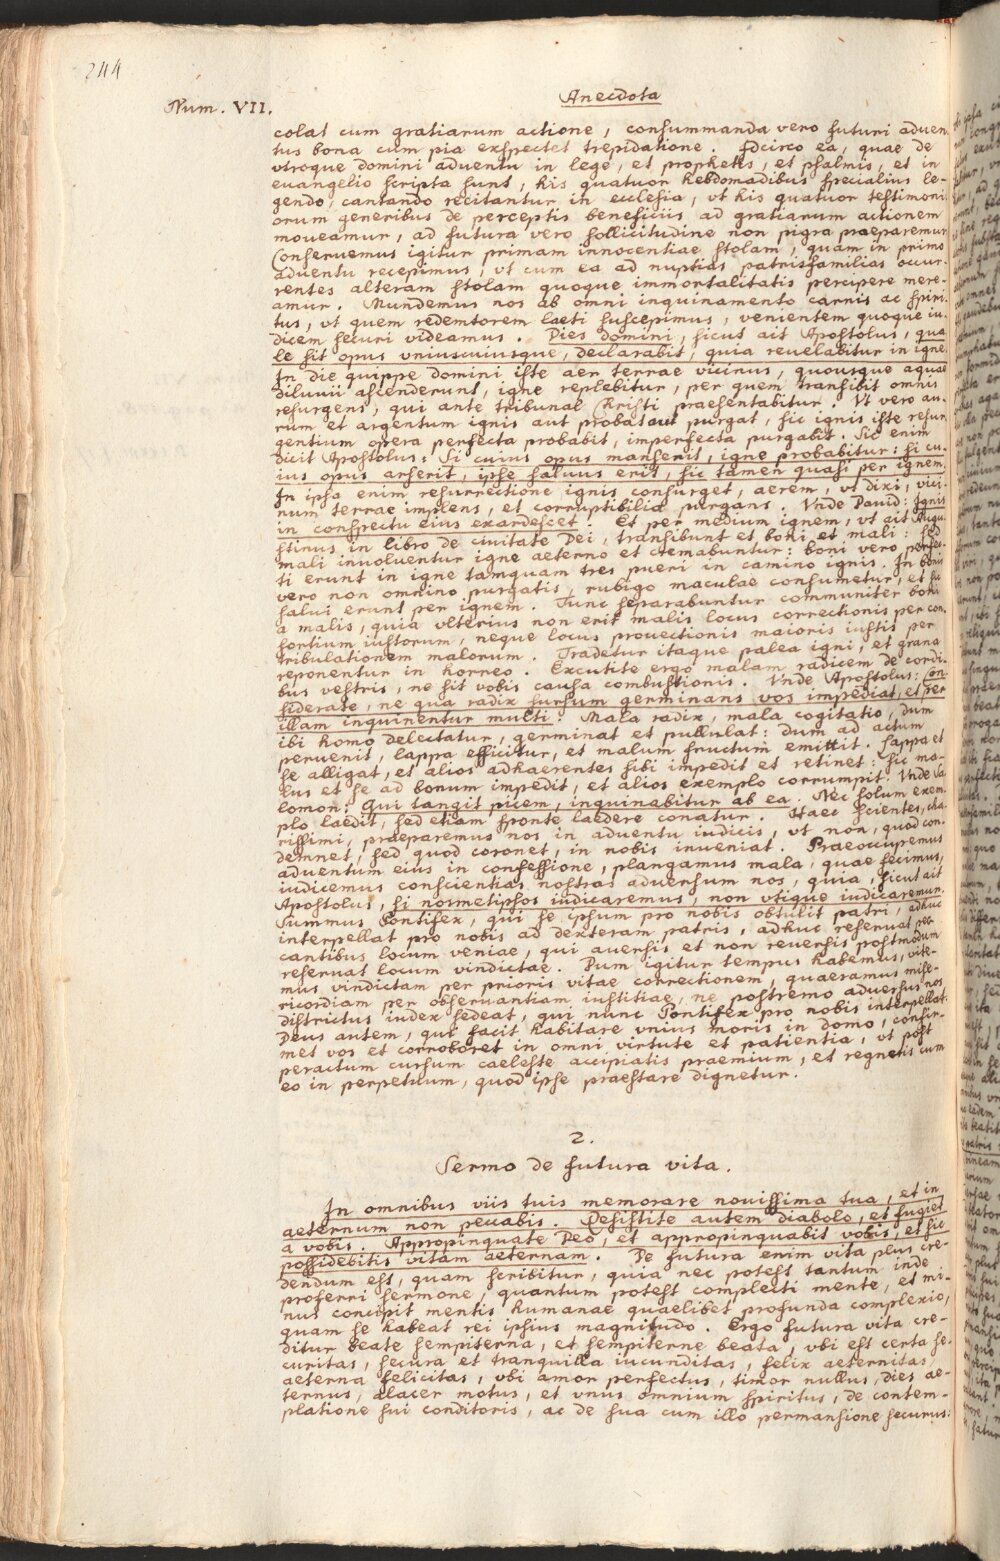 244
Num. VII.
Anecdota
colat cum gratiarum actione, consummanda vero futuri aduen-
tus bona cum pia exspectet trepidatione. Idcirco ea, quae de
vtroque domini aduentu in lege, et prophetis, et psalmis, et in
euangelio scripta sunt, his quatuor hebdomadibus specialius le-
gendo, cantando recitantur in ecclesia, vt his quatuor testimoni-
orum generibus de perceptis beneficiis ad gratiarum actionem
moueamur, ad futura vero sollicitudine non pigra praeparemur
Conseruemus igitur primam innocentiae stolam, quam in primo
aduentu recepimus, vt cum ea ad nuptias patrisfamilias occur-
rentes alteram stolam quoque immortalitatis percipere mere-
amur. Mundemus nos ab omni inquinamento carnis ac spiri-
tus, vt quem redemtorem laeti suscepimus, venientem quoque iu-
dicem securi videamus. Dies domini, sicut ait Apostolus, qua
le sit opus vniuscuiusque, declarabit, quia reuelabitur in igne.
In die quippe domini iste aer terrae vicinus, quousque aquae
diluuii ascenderunt, igne replebitur, per quem transibit omnis
resurgens, qui ante tribunal Christi praesentabitur. Vt vero au-
rum et argentum ignis aut probat aut purgat, sic ignis iste resur
gentium opera perfecta probabit, imperfecta purgabit. Sic enim
dicit Apostolus: Si cuius opus manserit, igne probabitur: si cu-
ius opus arserit, ipse saluus erit, sic tamen quasi per ignem.
In ipsa enim resurrectione ignis consurget, aerem, vt dixi, vici-
num terrae implens, et corruptibilia purgans. Vnde Dauid: Ignis
in conspectu eius exardescet. Et per medium ignem, vt ait Augu
stinus in libro de ciuitate Dei, transibunt et boni et mali: sed
mali inuoluentur igne aeterno et cremabuntur: boni vero perfec-
ti erunt in igne tamquam tres pueri in camino ignis. In bonis
vero non omnino purgatis, rubigo maculae consumetur, et sic
salui erunt per ignem. Tunc separabuntur communiter boni
a malis, quia vlterius non erit malis locus correctionis per con-
sortium iustorum, neque locus prouectionis maioris iustis per
tribulationem malorum. Tradetur itaque palea igni, et grana
reponentur in horreo. Excutite ergo malam radicem de cordi-
bus vestris, ne sit vobis causa combustionis. Vnde Apostolus: Con-
siderate, ne qua radix sursum germinans vos impediat, et per
illam inquinentur multi. Mala radix, mala cogitatio, dum
ibi homo delectatur, germinat et pullulat: dum ad actum
peruenit, lappa efficitur, et malum fructum emittit. Lappa et
se alligat, et alios adhaerentes sibi impedit et retinet: sic ma-
lus et se ad bonum impedit, et alios exemplo corrumpit. Vnde Sa
lomon: Qui tangit picem, inquinabitur ab ea. Nec solum exem
plo laedit, sed etiam sponte laedere conatur. Haec scientes, cha-
rissimi, praeparemus nos in aduentu iudicis, vt non, quod con-
demnet, sed quod coronet, in nobis inueniat. Praeoccupemus
aduentum eius in confessione, plangamus mala, quae fecimus,
iudicemus conscientias nostras aduersum nos, quia, sicut ait
Apostolus, si nosmetipsos iudicaremus, non vtique iudicaremur.
Summus Pontifex, qui se ipsum pro nobis obtulit patri, adhuc
interpellat pro nobis ad dexteram patris, adhuc reseruat pec-
cantibus locum veniae, qui auersis et non reuersis postmodum
reseruat locum vindictae. Dum igitur tempus habemus, vite-
mus vindictam per prioris vitae correctionem, quaeramus mise-
ricordiam per obseruantiam iustitiae, ne postremo aduersus nos
districtus iudex sedeat, qui nunc Pontifex pro nobis interpellat.
Deus autem, qui facit habitare vnius moris in domo, confir-
met vos et corroboret in omni virtute et patientia, vt post
peractum cursum caeleste accipiatis praemium, et regnetis cum
eo in perpetuum, quod ipse praestare dignetur.
2.
Sermo de futura vita.
In omnibus viis tuis memorare nouissima tua, et in
aeternum non peccabis. Resistite autem diabolo, et fugiet
a vobis. Appropinquate Deo, et appropinquabit vobis, et sic
possidebitis vitam aeternam. De futura enim vita plus cre-
dendum est, quam scribitur, quia nec potest tantum inde
proferri sermone, quantum potest complecti mente, et mi-
nus concipit mentis humanae quaelibet profunda complexio,
quam se habeat rei ipsius magnitudo. Ergo futura vita cre-
ditur beate sempiterna, et sempiterne beata, vbi est certa se-
curitas, secura et tranquilla iucunditas, felix aeternitas,
aeterna felicitas, vbi amor perfectus, timor nullus, dies ae-
ternus, alacer motus, et vnus omnium spiritus, de contem-
platione sui conditoris, ac de sua cum illo permansione securus: